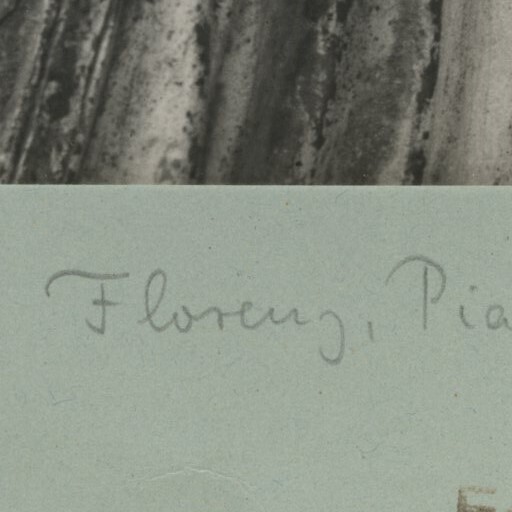 Florenz, Pia